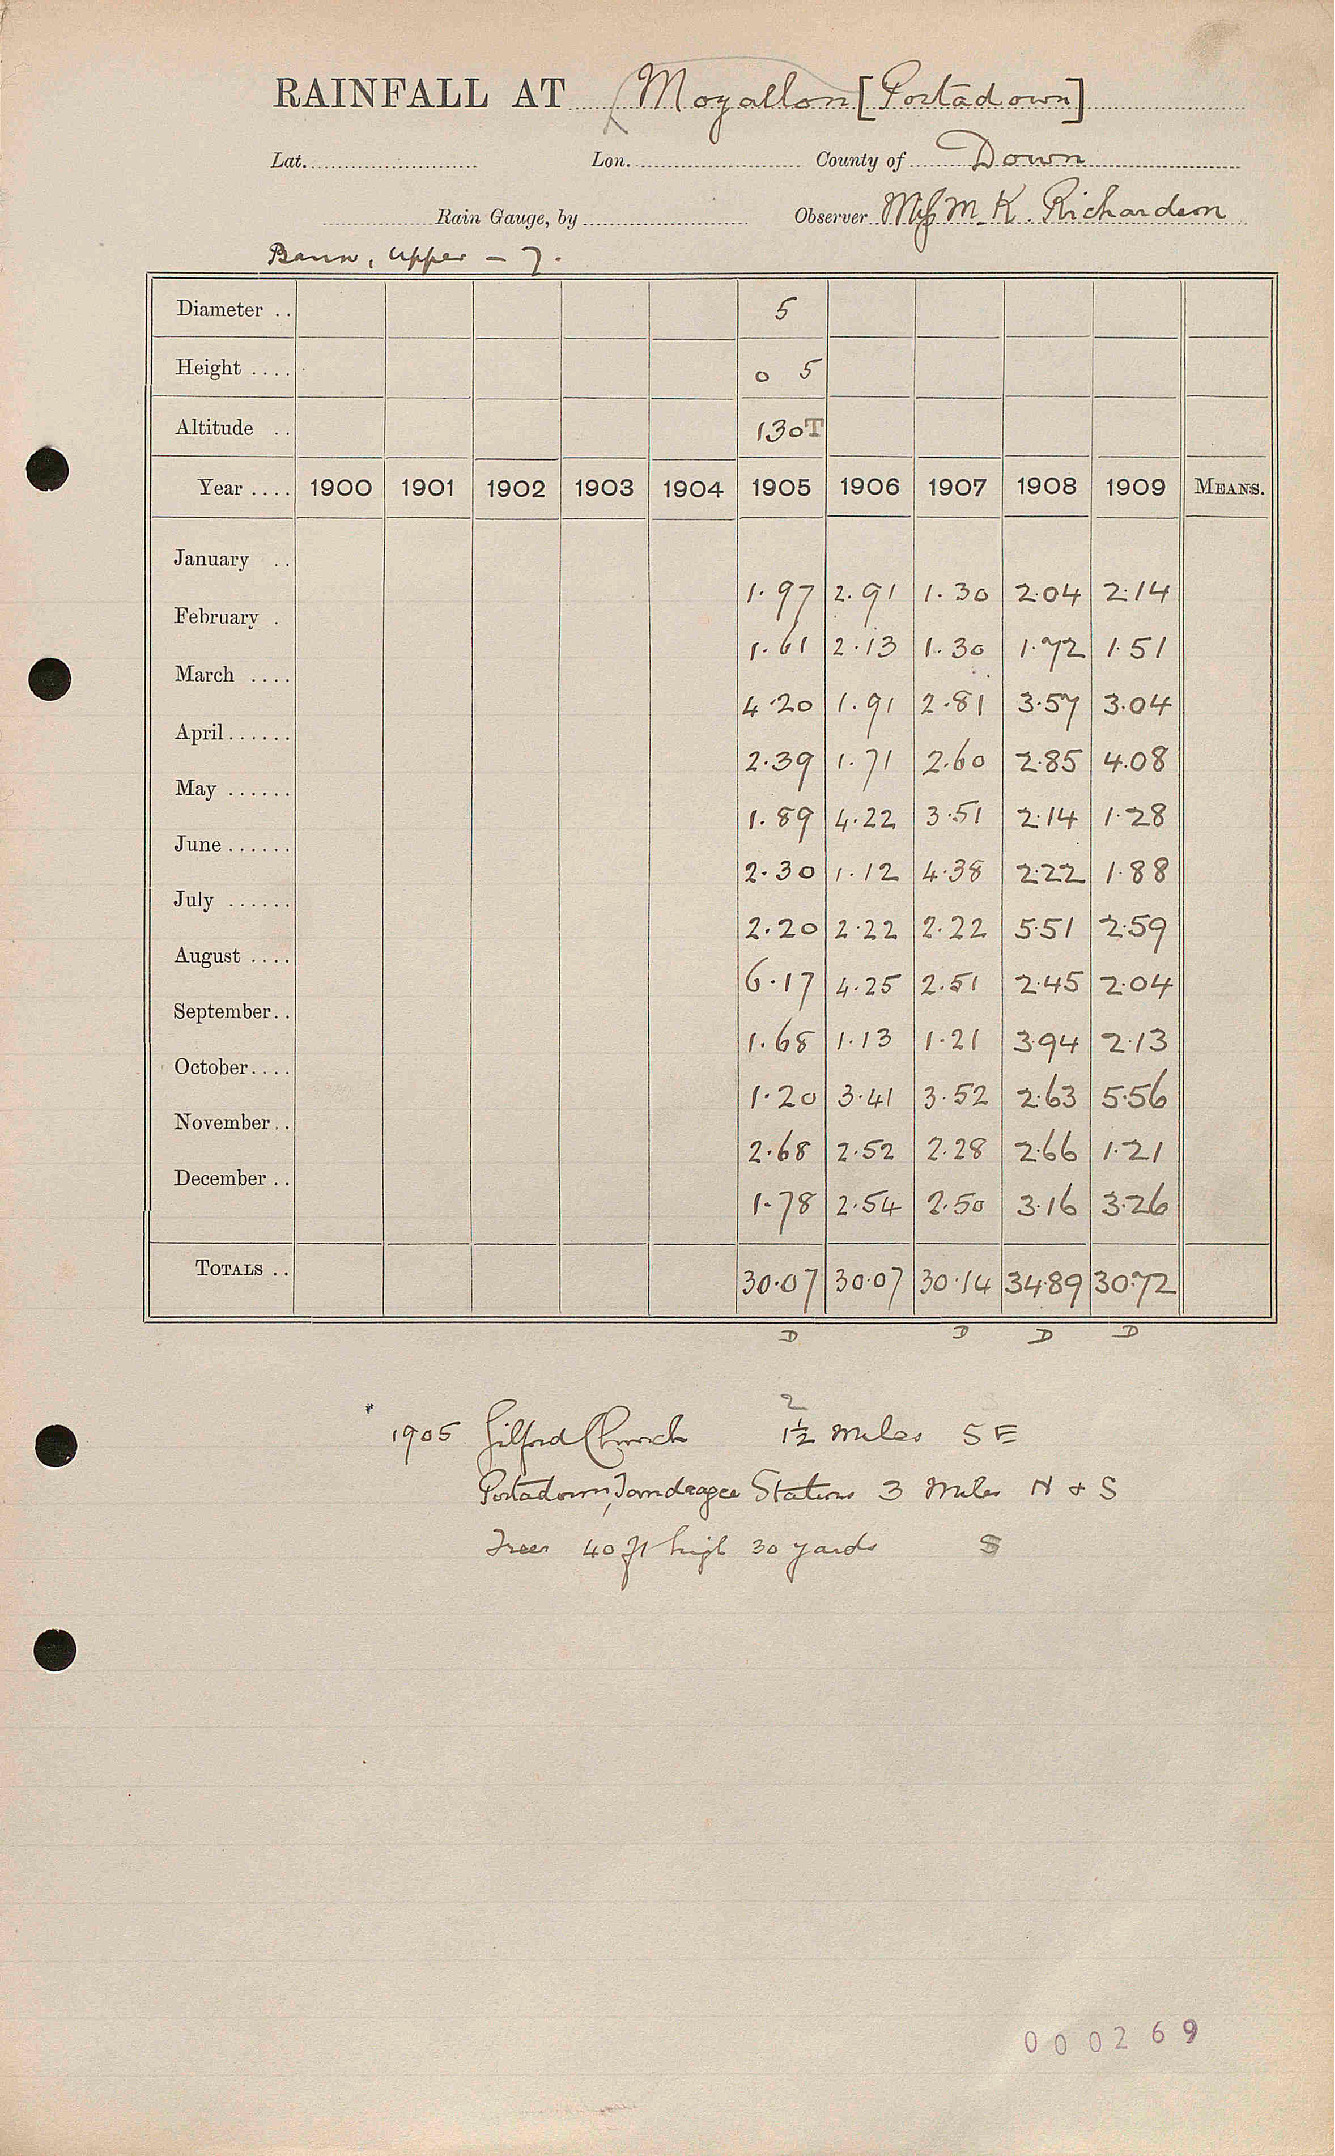 RAINFALL AT Moyallon [Portadown]
Lat. Lon. County of Down
Rain Gauge, by Observer Miss M. K. Richardson
Bann, Upper - 7.
Diameter .. 5
Height .... 0 5
Altitude .. 130T
Year .... 1900 1901 1902 1903 1904 1905 1906 1907 1908 1909 MEANS.
January .. 1.97 2.91 1.30 2.04 2.14
February . 1.61 2.13 1.30 1.72 1.51
March .... 4.20 1.91 2.81 3.57 3.04
April...... 2.39 1.71 2.60 2.85 4.08
May ...... 1.89 4.22 3.51 2.14 1.28
June ...... 2.30 1.12 4.38 2.22 1.88
July ...... 2.20 2.22 2.22 5.51 2.59
August .... 6.17 4.25 2.51 2.45 2.04
September.. 1.68 1.13 1.21 3.94 2.13
October.... 1.20 3.41 3.52 2.63 5.56
November.. 2.68 2.52 2.28 2.66 1.21
December .. 1.78 2.54 2.50 3.16 3.26
TOTALS .. 30.07 30.07 30.14 34.89 30.72
D D D D
2
1905 Gilford Church 1½ Miles SE
Portadown, Tandragee Stations 3 Miles N & S
Trees 40 ft high 30 yards S
000269